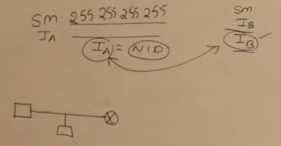 SM: 255 255 255 255
IA:
IA = NID
SM:
IB
IB